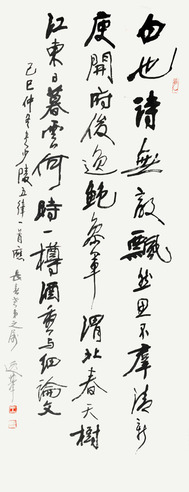 白也詩無敵飄然思不群清新
庾開府俊逸鮑參軍渭北春天樹
江東日暮雲何時一樽酒重与細論文
己巳仲冬書少陵五律一首應